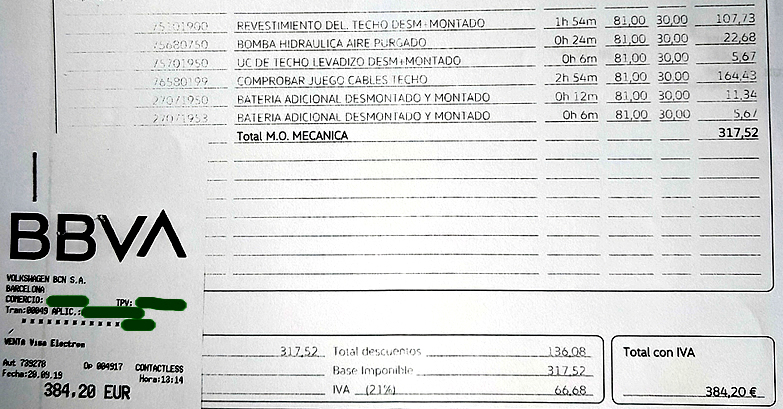 75101900 REVESTIMIENTO DEL. TECHO DESM+MONTADO 1h 54m 81,00 30,00 107,73
75680750 BOMBA HIDRAULICA AIRE PURGADO 0h 24m 81,00 30,00 22,68
75701950 UC DE TECHO LEVADIZO DESM+MONTADO 0h 6m 81,00 30,00 5,67
76580199 COMPROBAR JUEGO CABLES TECHO 2h 54m 81,00 30,00 164,43
27071950 BATERIA ADICIONAL DESMONTADO Y MONTADO 0h 12m 81,00 30,00 11,34
27071953 BATERIA ADICIONAL DESMONTADO Y MONTADO 0h 6m 81,00 30,00 5,67
Total M.O. MECANICA 317,52
BBVA
VOLKSWAGEN BCN S.A.
BARCELONA
COMERCIO: TPV:
Tran:00049 APLIC.:
VENTA Visa Electron
Aut 739278 Op 004917 CONTACTLESS
Fecha:20.09.19 Hora:13:14
384,20 EUR
317,52 Total descuentos 136,08
Base Imponible 317,52
IVA (21%) 66,68
Total con IVA
384,20 €